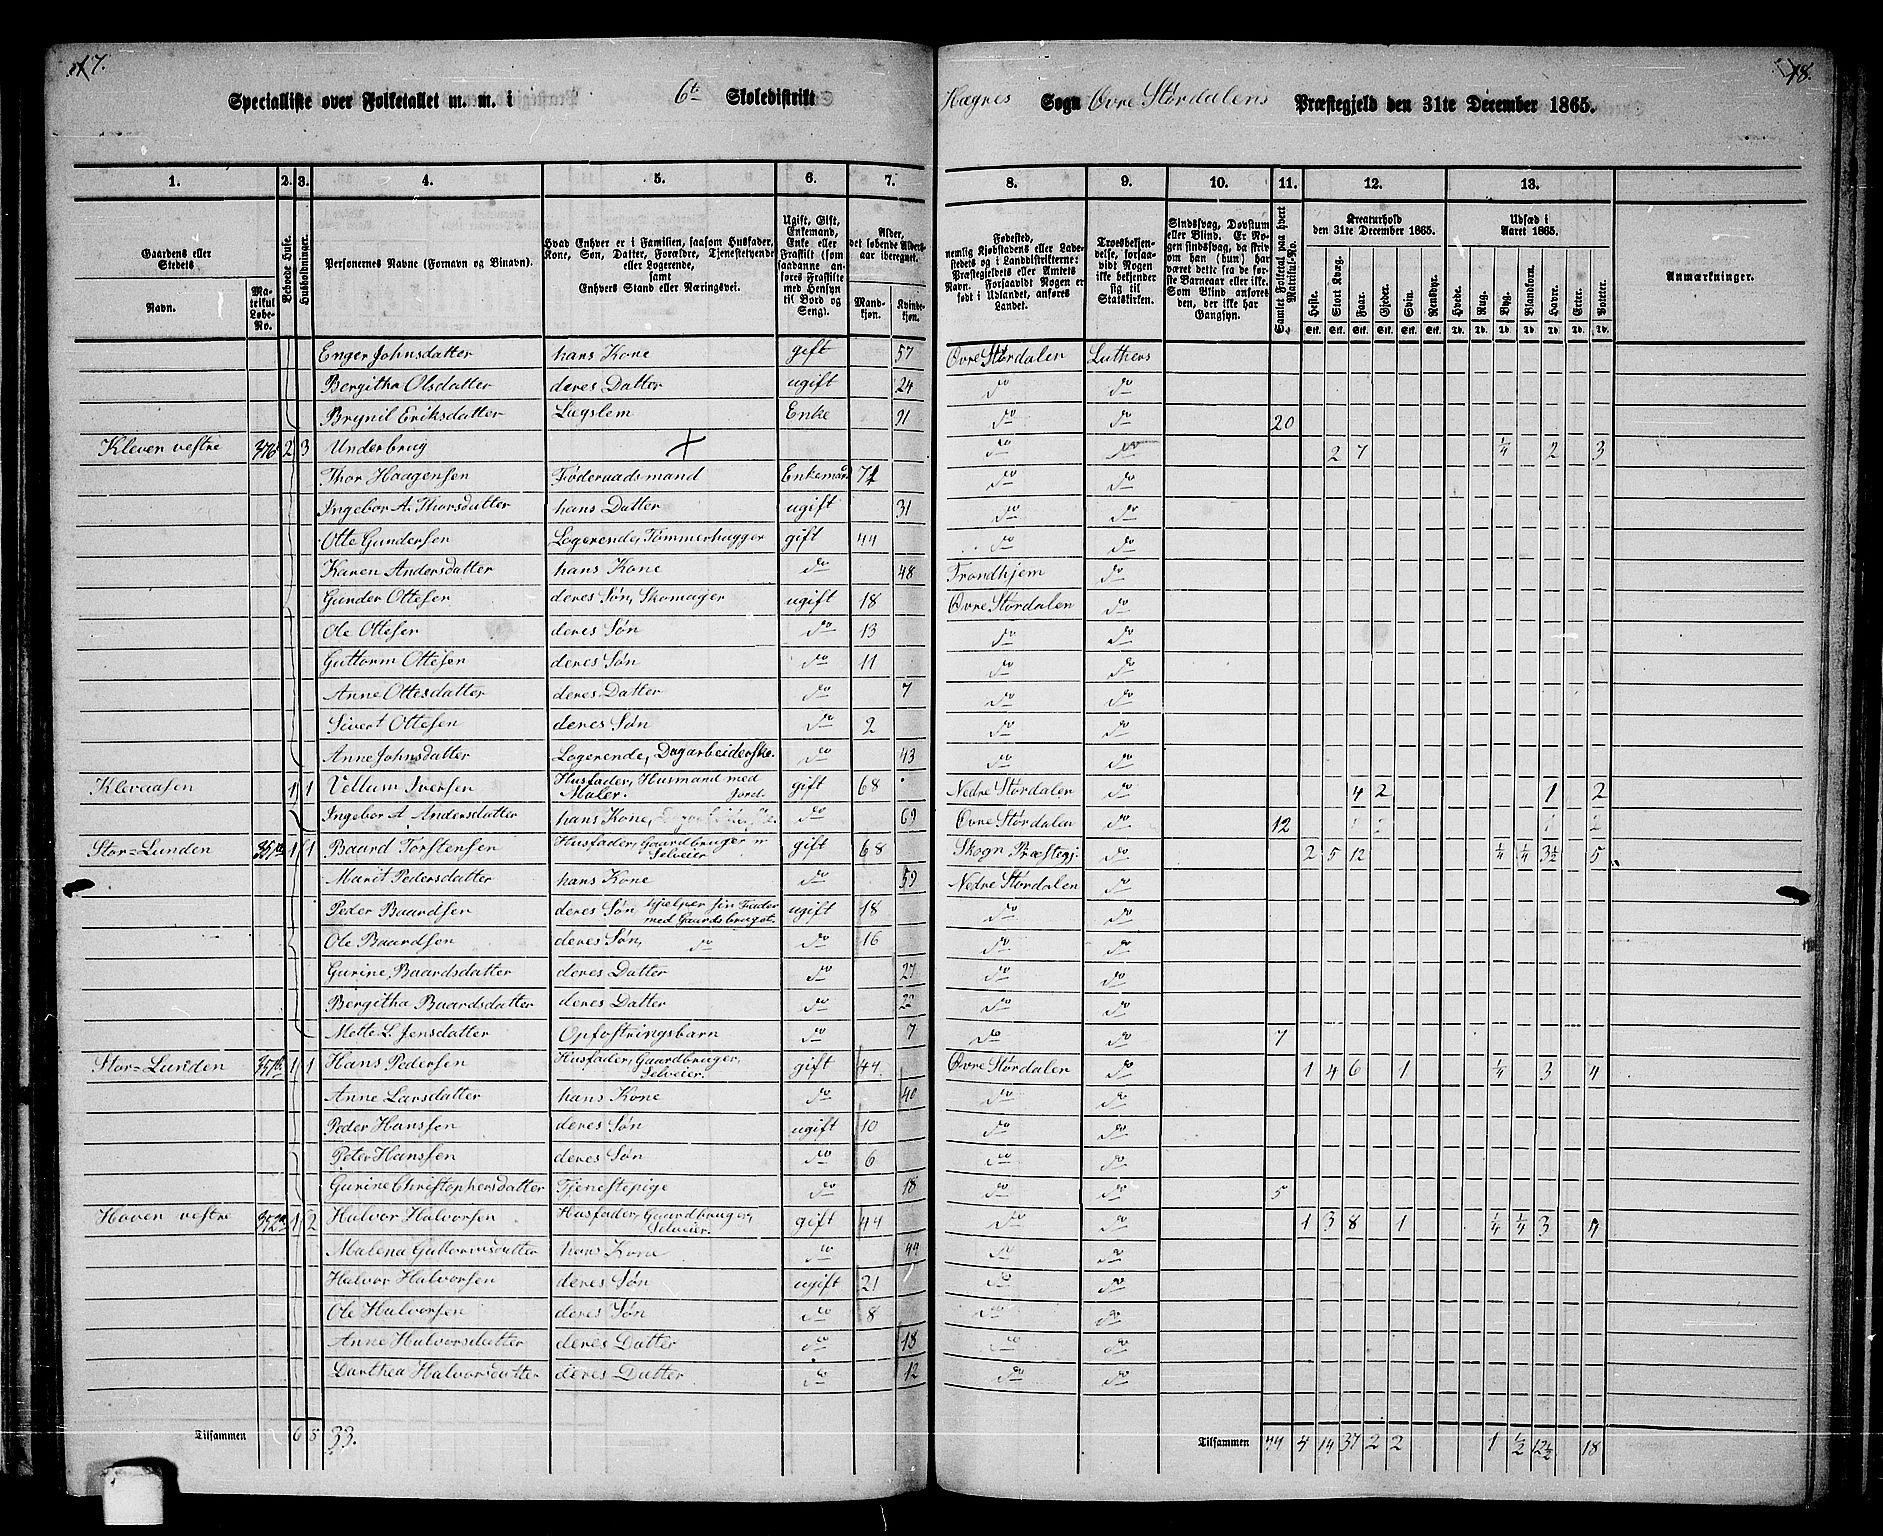 17.
18.
Specialliste over Folketallet m. m. i 6te Skoledistrikt Hægnes Sogn Øvre Størdalens Præstegjeld den 31te December 1865.
1. 2. 3. 4. 5. 6. 7. 8. 9. 10. 11. 12. 13.
Gaardens eller Stedets
Navn.
Matrikul Løbe-No.
Beboede Huse.
Husholdninger.
Personernes Navne (Fornavn og Binavn).
Hvad Enhver er i Familien, saasom Husfader, Kone, Søn, Datter, Forældre, Tjenestetyende eller Logerende, samt Enhvers Stand eller Næringsvei.
Ugift, Gift, Enkemand, Enke eller Fraskilt (som saadanne anføres Fraskilte med Hensyn til Bord og Seng).
Alder, det løbende Alders-aar iberegnet.
Mandkjøn.
Kvindekjøn.
Fødested, nemlig Kjøbstadens eller Ladestedets og i Landdistrikterne: Præstegjeldets eller Amtets Navn. Forsaavidt Nogen er født i Udlandet, anføres Landet.
Troesbekjendelse, forsaavidt Nogen ikke bekjender sig til Statskirken.
Sindssvag, Døvstum eller Blind. Er Nogen sindssvag, da skrives om han (hun) har været dette fra de første Barneaar eller ikke. Som Blind anføres den, der ikke har Gangsyn.
Samlet Folketal paa hvert Matrikul-No.
Kreaturhold den 31te December 1865.
Heste. Stort Kvæg. Faar. Gjeder. Svin. Rensdyr.
Udsæd i Aaret 1865.
Hvede. Rug. Byg. Blandkorn. Havre. Erter. Poteter.
Stk. Stk. Stk. Stk. Stk. Stk. Td. Td. Td. Td. Td. Td. Td.
Anmærkninger.
Enger Johnsdatter hans Kone gift 57 Øvre Størdalen Luthers
Bergitha Olsdatter deres Datter ugift 24 do do
Brynil Eriksdatter Lægslem Enke 91 do do 20
Kleven vestre 2 3 Underbrug do do 2 7 1/4 2 3
Thor Haagensen Føderaadsmand Enkemand do do
Ingebor A. Thorsdatter hans Datter ugift 31 do do
Otte Gundersen Logerende, Tømmerhugger gift 44 do do
Karen Andersdatter hans Kone do 48 Trondhjem do
Gunder Ottesen deres Søn, Skomager ugift 18 Øvre Størdalen do
Ole Ottesen deres Søn do 13 do do
Guttorm Ottesen deres Søn do 11 do do
Anne Ottesdatter deres Datter do 7 do do
Sivert Ottesen deres Søn do 2 do do
Anne Johnsdatter Logerende, Dagarbeiderske. do 43 do do
Klevaasen 1 1 Vellum Iversen Husfader, Husmand med Jord. Maler. gift 68 Nedre Størdalen do 4 2 1 2
Ingebor A Andersdatter hans Kone, do 69 Øvre Størdalen do 12
Stor=Lunden 1 1 Baard Torstensen Husfader, Gaardbruger Selveier gift 68 Skogn Præstegj. do 2 5 12 1/4 1/4 3 1/2 5
Marit Pedersdatter hans Kone do 59 Nedre Størdalen do
Peder Baardsen deres Søn hjelper sin Fader med Gaardsbruget. ugift 18 do do
Ole Baardsen deres Søn, do do 16 do do
Gurine Baardsdatter deres Datter do 27 do do
Bergitha Baardsdatter deres Datter do 22 do do
Mette L. Jensdatter Opfostringsbarn do 7 do do 7
Stor=Lunden 1 1 Hans Pedersen Husfader, Gaardbruger, Selveier. gift 44 Øvre Størdalen do 1 4 6 1 1/4 3 4
Anne Larsdatter hans Kone do 40 do do
Peder Hanssen deres Søn ugift 10 do do
Peter Hanssen deres Søn do 6 do do
Gurine Christophersdatter Tjenestepige do 18 do do 5
Haven vestre 1 2 Halvor Halvorsen Husfader, Gaardbruger, Selveier. gift 44 do do 1 3 8 1 1/4 1/4 3 4
Malena Guttormsdatter hans Kone do 44 do do
Halvor Halvorsen deres Søn ugift 21 do do
Ole Halvorsen deres Søn do 8 do do
Anne Halvorsdatter deres Datter do 18 do do
Darthea Halvorsdatter deres Datter do 12 do do
Tilsammen 6 8 33. Tilsammen 44 4 14 37 2 2 1 1/2 12 1/2 18